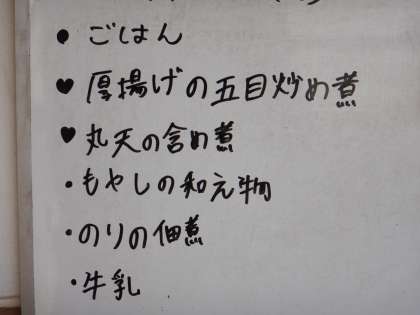 ● ごはん
♥ 厚揚げの五目炒め煮
♥ 丸天の含め煮
・もやしの和え物
・のりの佃煮
・牛乳